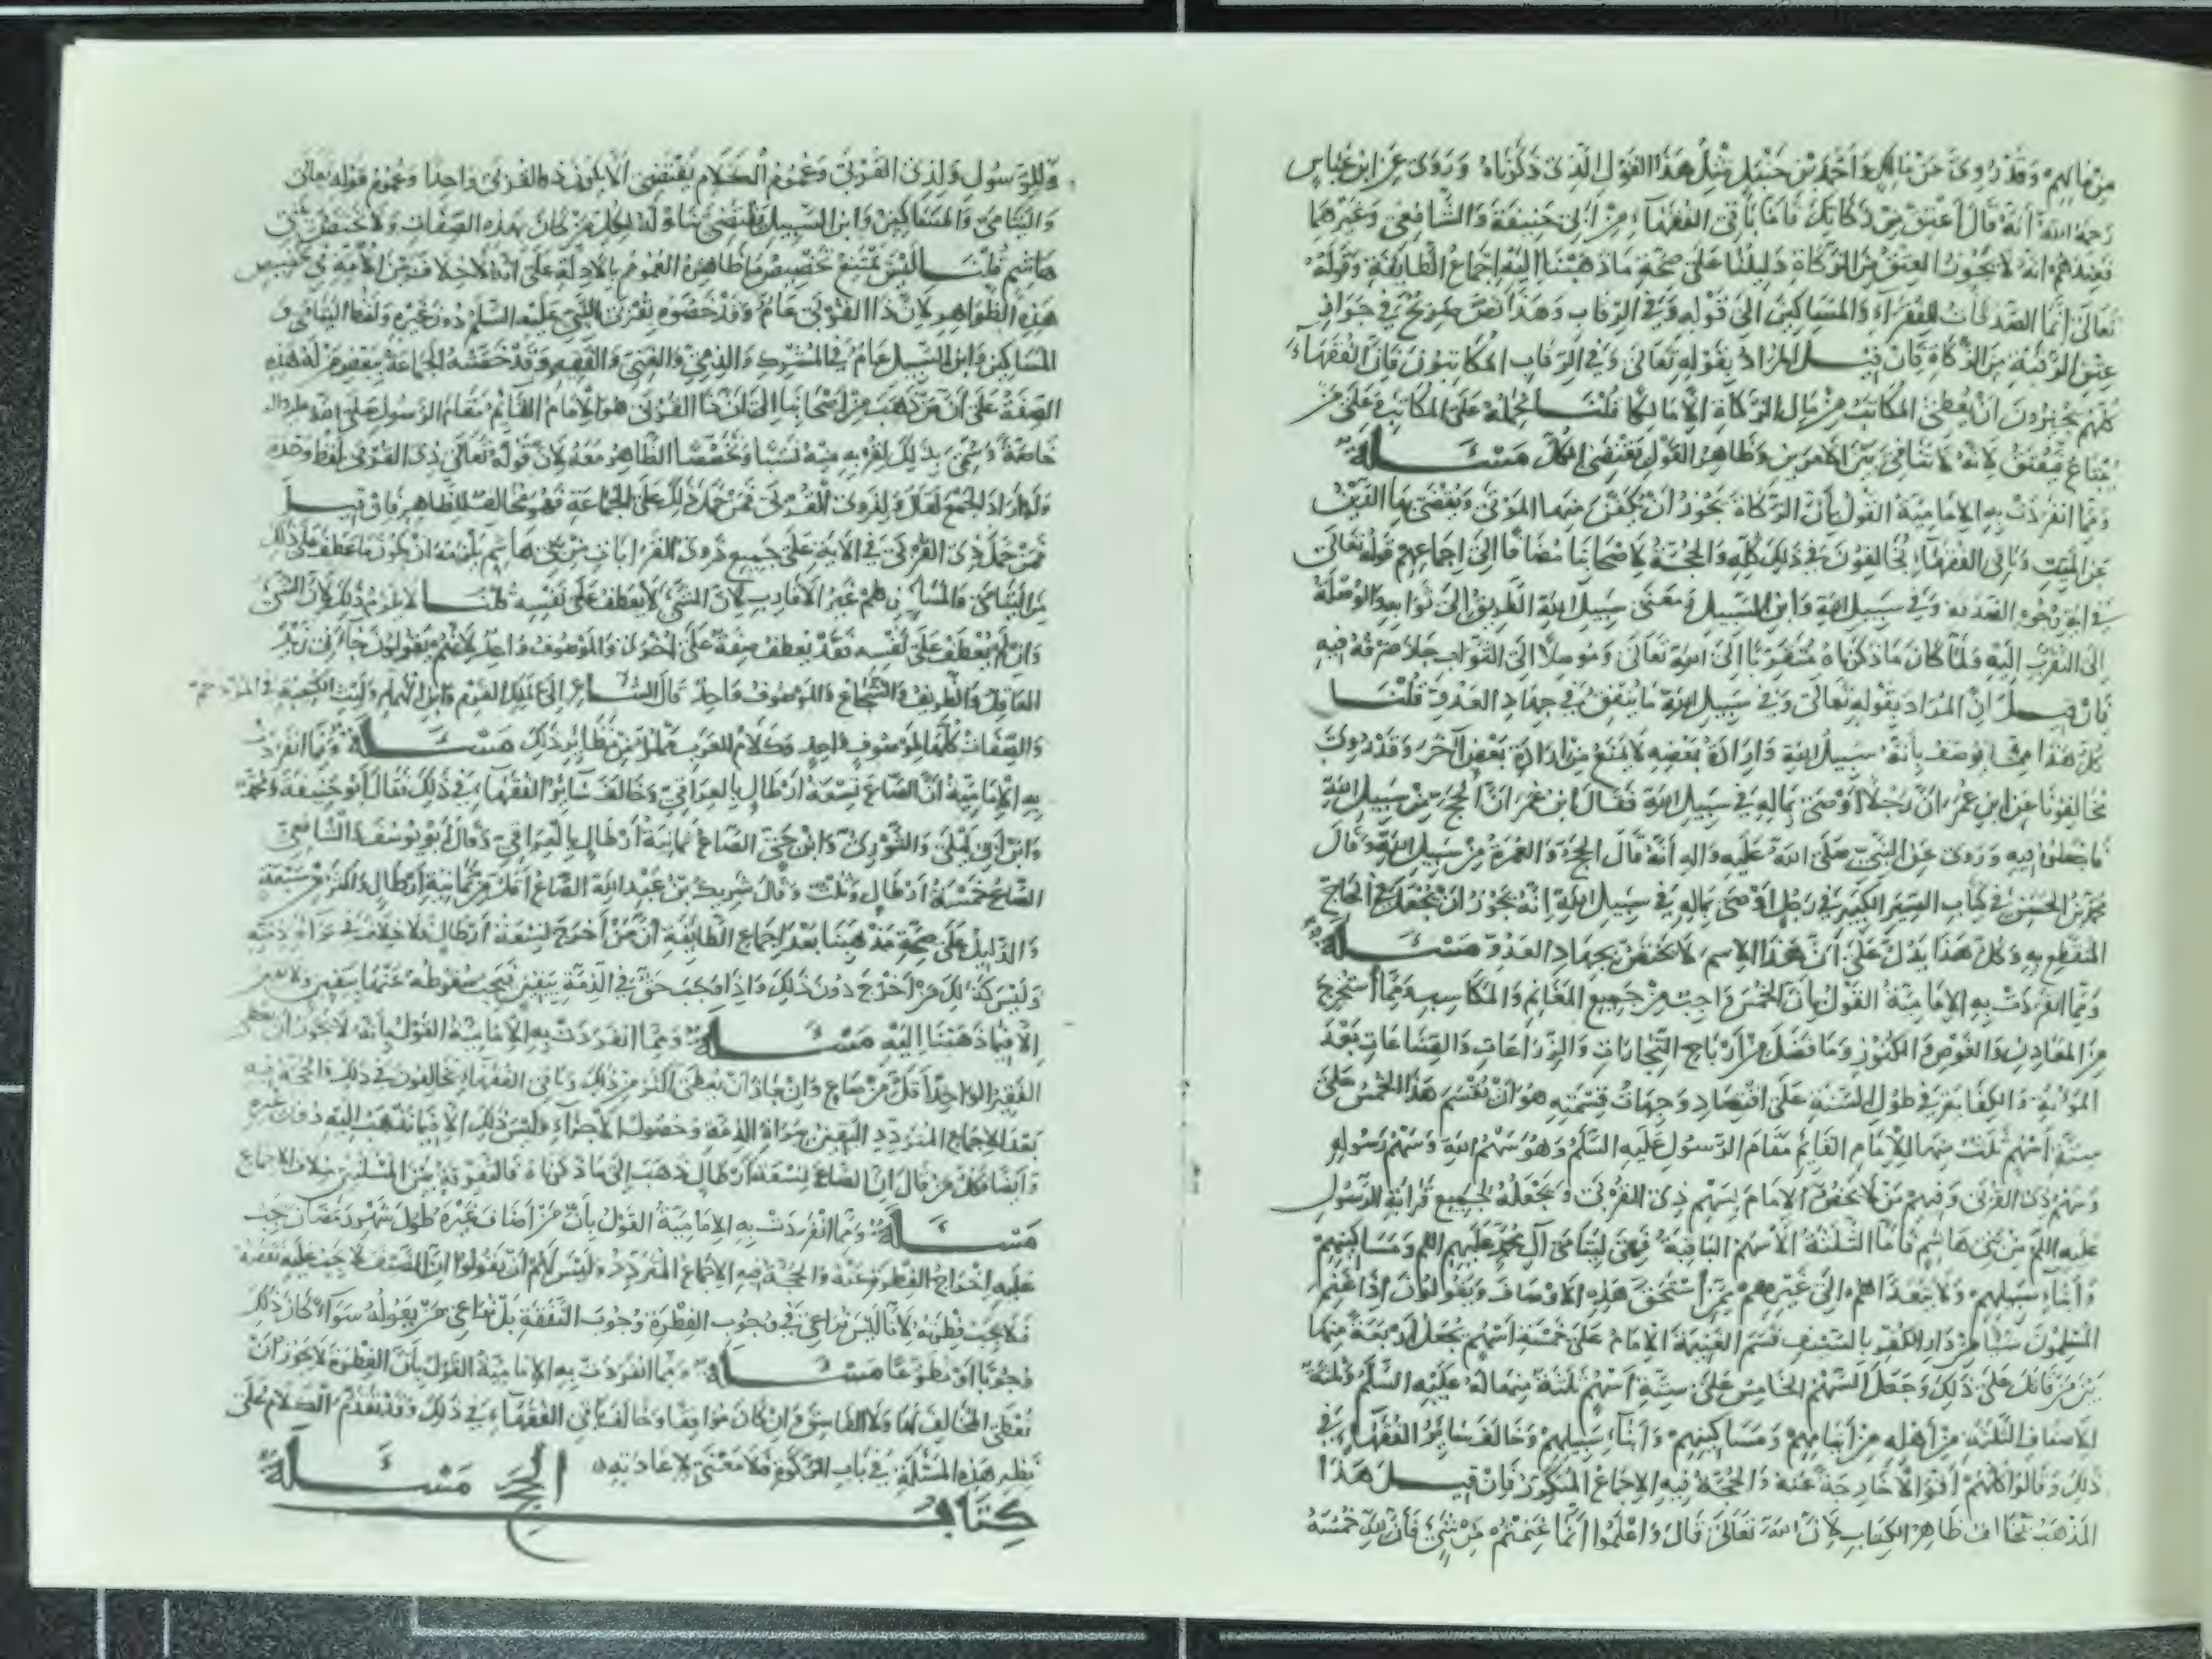 من مالهم وقد روي عن مالك واحمد بن حنبل مثل هذا القول الذي ذكرناه وروي عن ابن عباس
رحمه الله انه قال اعتق من زكاتك فاما باقي الفقهاء من ابي حنيفة والشافعي وغيرهما
فعندهم انه لا يجوز العتق من الزكاة دليلنا على صحة ما ذهبنا اليه اجماع الطايفة وقوله
تعالى انما الصدقات للفقراء والمساكين الى قوله وفي الرقاب وهذا نص صريح في جواز
عتق الرقبة من الزكاة فان قيل المراد بقوله تعالى وفي الرقاب المكاتبون فان الفقهاء
كلهم يجيزون ان يعطى المكاتب من مال الزكاة الا مالكا قلنا نحمله على المكاتب وعلى من
يبتاع فيعتق لانه لا تنافي بين الامرين وظاهر القول يقتضي الكل مسئلة
ومما انفردت به الامامية القول بأن الزكاة يجوز أن يكفن منها الموتى ويقضى بها الدين
عن الميت وباقي الفقهاء يخالفون في ذلك كله والحجة لاصحابنا مضافا الى اجماعهم قوله تعالى
في اية وجوه الصدقة وفي سبيل الله وابن السبيل ومعنى سبيل الله الطريق الى ثوابه والوصلة
الى التقرب اليه ولما كان ما ذكرناه مقربا الى الله تعالى وموصلا الى الثواب جاز صرفه فيه
فان قيل ان المراد بقوله تعالى وفي سبيل الله ما ينفق في جهاد العدو قلنا
كل هذا مما يوصف بأنه سبيل الله وارادة بعضه لا يمنع من ارادة بعض آخر وقد روى
مخالفونا عن ابن عمر ان رجلا اوصى بماله في سبيل الله فقال ابن عمر ان الحج من سبيل الله
فاجعلوه فيه وروي عن النبي صلى الله عليه واله أنه قال الحج والعمرة من سبيل الله وقال
محمد بن الحسن في كتاب السير الكبير في رجل اوصى بماله في سبيل الله انه يجوز ان يجعل في الحاج
المنقطع به وكل هذا يدل على أن هذا الاسم لا يختص بجهاد العدو مسئلة
ومما انفردت به الامامية القول بأن الخمس واجب من جميع المغانم والمكاسب ومما أستخرج
من المعادن والغوص والكنوز وما فضل من أرباح التجارات والزراعات والصناعات بعد
المؤنة والكفاية في طول السنة على اقتصاد وجهات قسمته هو ان يقسم هذا الخمس على
ستة أسهم ثلث منها للامام القائم مقام الرسول عليه السلم وهو سهم الله وسهم رسوله
وسهم ذي القربى وفيهم من لا يخص الامام بسهم ذي القربى ويجعله لجميع قرابة الرسول
عليه السلم من بني هاشم فاما الثلثة الأسهم الباقية فهي ليتامى آل محمد عليهم السلم ومساكينهم
وأبناء سبيلهم ولا يتعداهم الى غيرهم ممن أستحق هذه الاوصاف ويقولون اذا غنم
المسلمون شيئا من دار الكفر بالسيف قسم الغنيمة الامام على خمسة اسهم فجعل أربعة منها
بين من قاتل على ذلك وجعل السهم الخامس على ستة أسهم ثلثة منها له عليه السلم وثلثة
للاصناف الثلثة من أهله من أيتامهم ومساكينهم وأبناء سبيلهم وخالف سائر الفقهاء في
ذلك وقالوا كلهم أقوالا خارجة عنه والحجة فيه الاجماع المتكرر فان قيل هذا
المذهب يخالف ظاهر الكتاب لان الله تعالى قال واعلموا أنما غنمتم من شيئ فأن لله خمسه
وللرسول ولذي القربى وعموم الكلام يقتضي ألا يكون ذو القربى واحدا وعموم قوله تعالى
واليتامى والمساكين وابن السبيل يقتضي تناوله لكل من كان بهذه الصفات ولا يختص ببني
هاشم قلنا ليس يمتنع تخصيص ما ظاهره العموم بالادلة على انه لا خلاف بين الامة في تخصيص
هذه الظواهر لان ذا القربى عام وقد خصوه بقربى النبي عليه السلم دون غيره ولفظ اليتامى و
المساكين وابن السبيل عام في المشرك والذمي والغني والفقير وقد خصته الجماعة ببعض من له هذه
الصفة على أن من ذهب من اصحابنا الى ان ذا القربى هو الامام القائم مقام الرسول صلى الله عليه واله
خاصة وسمي بذلك لقربه منه نسبا وتخصصا الظاهر معه لان قوله تعالى ذي القربى لفظ وحده
ولو اراد الجمع لقال ولذوي القربى فمن حمل ذلك على الجماعة فهو مخالف للظاهر فان قيل
فمن حمل ذي القربى في الاية على جميع ذوي القرابات من بني هاشم يلزمه ان يكون ما عطف على ذلك
من اليتامى والمساكين هم غير الاقارب لان الشئ لا يعطف على نفسه قلنا لا يلزم ذلك لان الشئ
وان لم يعطف على نفسه فقد يعطف صفة على اخرى والموصوف واحد لانهم يقولون جاءني زيد
العاقل والظريف والشجاع والموصوف واحد قال الشاعر الى الملك القرم وابن الهمام وليث الكتيبة في المزدحم
والصفات كلها لموصوف واحد وكلام العرب مملوء من نظائر ذلك مسئلة ومما انفردت
به الامامية أن الصاع تسعة أرطال بالعراقي وخالف سائر الفقهاء في ذلك فقال أبو حنيفة ومحمد
وابن أبي ليلى والثوري وابن حي الصاع ثمانية أرطال بالعراقي وقال أبو يوسف والشافعي
الصاع خمسة أرطال وثلث وقال شريك بن عبد الله الصاع أقل من ثمانية أرطال واكثر من سبعة
والدليل على صحة مذهبنا بعد اجماع الطايفة أن من أخرج تسعة أرطال فلا خلاف في براءة ذمته
وليس كذلك من أخرج دون ذلك واذا وجب حق في الذمة بيقين فيجب سقوطه عنها بيقين ولا يقين
الا فيما ذهبنا اليه مسئلة ومما انفردت به الامامية القول بأنه لا يجوز أن يعطى
الفقير الواحد أقل من صاع وان جاز أن يعطى أكثر من ذلك وباقي الفقهاء يخالفون في ذلك والحجة فيه
بعد الاجماع المتردد اليقين ببراءة الذمة وحصول الاجزاء وليس ذلك الا فيما نذهب اليه دون غيره
وأيضا فكل من قال ان الصاع تسعة أرطال ذهب الى ما ذكرناه فالتفرقة بين المسئلتين خلاف الاجماع
مسئلة ومما انفردت به الامامية القول بأن من أضاف غيره طول شهر رمضان يجب
عليه اخراج الفطرة عنه والحجة فيه الاجماع المتردد وليس لهم أن يقولوا ان الضيف لا يجب عليه نفقته
فلا يجب فطرته لانا ليس نراعي في وجوب الفطرة وجوب النفقة بل نراعي من يعوله سواء كان ذلك
وجوبا او تطوعا مسئلة ومما انفردت به الامامية القول بأن الفطرة لا يجوز أن
تعطى المخالف لها ولا الفاسق وان كان موافقا وخالف باقي الفقهاء في ذلك وقد تقدم الكلام على
نظير هذه المسئلة في باب الزكوة فلا معنى لاعادته
كتاب الحج مسئلة